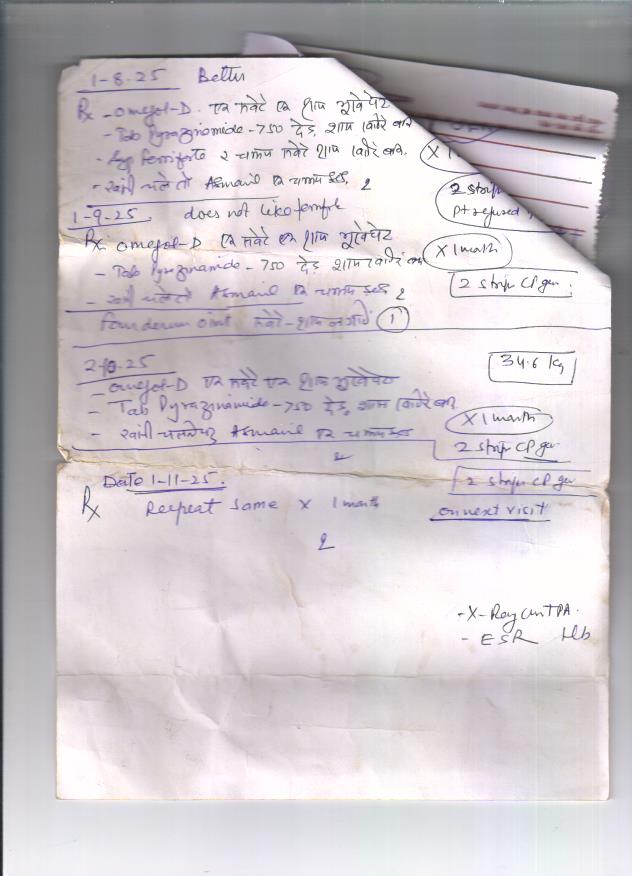 1-8-25 Better
Rx - omegol-D. एक सवेरे एक शाम भूखे पेट
- Tab Pyrazinamide - 750 डेढ़ शाम खाने बाद
- Syp 2 चम्मच सवेरे शाम खाने बाद
X 1
- खांसी चले तो Asmanil एक चम्मच 2
2 strip
Pt refused
1-9-25. does not like
Rx. omegol-D एक सवेरे एक शाम भूखे पेट
X 1 month
- Tab Pyrazinamide - 750 डेढ़ शाम खाने बाद
- खांसी चले तो Asmanil एक चम्मच 2
2 strip CP
oint सवेरे - शाम लगायें 1
2-10-25
34.6 kg
- omegol-D एक सवेरे एक शाम भूखे पेट
- Tab Pyrazinamide - 750 डेढ़ शाम खाने बाद
X 1 month
- खांसी चलने पर Asmanil एक चम्मच
2
2 strip CP
Date 1-11-25.
2 strip CP
Rx Reepeat same x 1 month
on next visit
2
- X-Ray Chest PA.
- ESR Hb